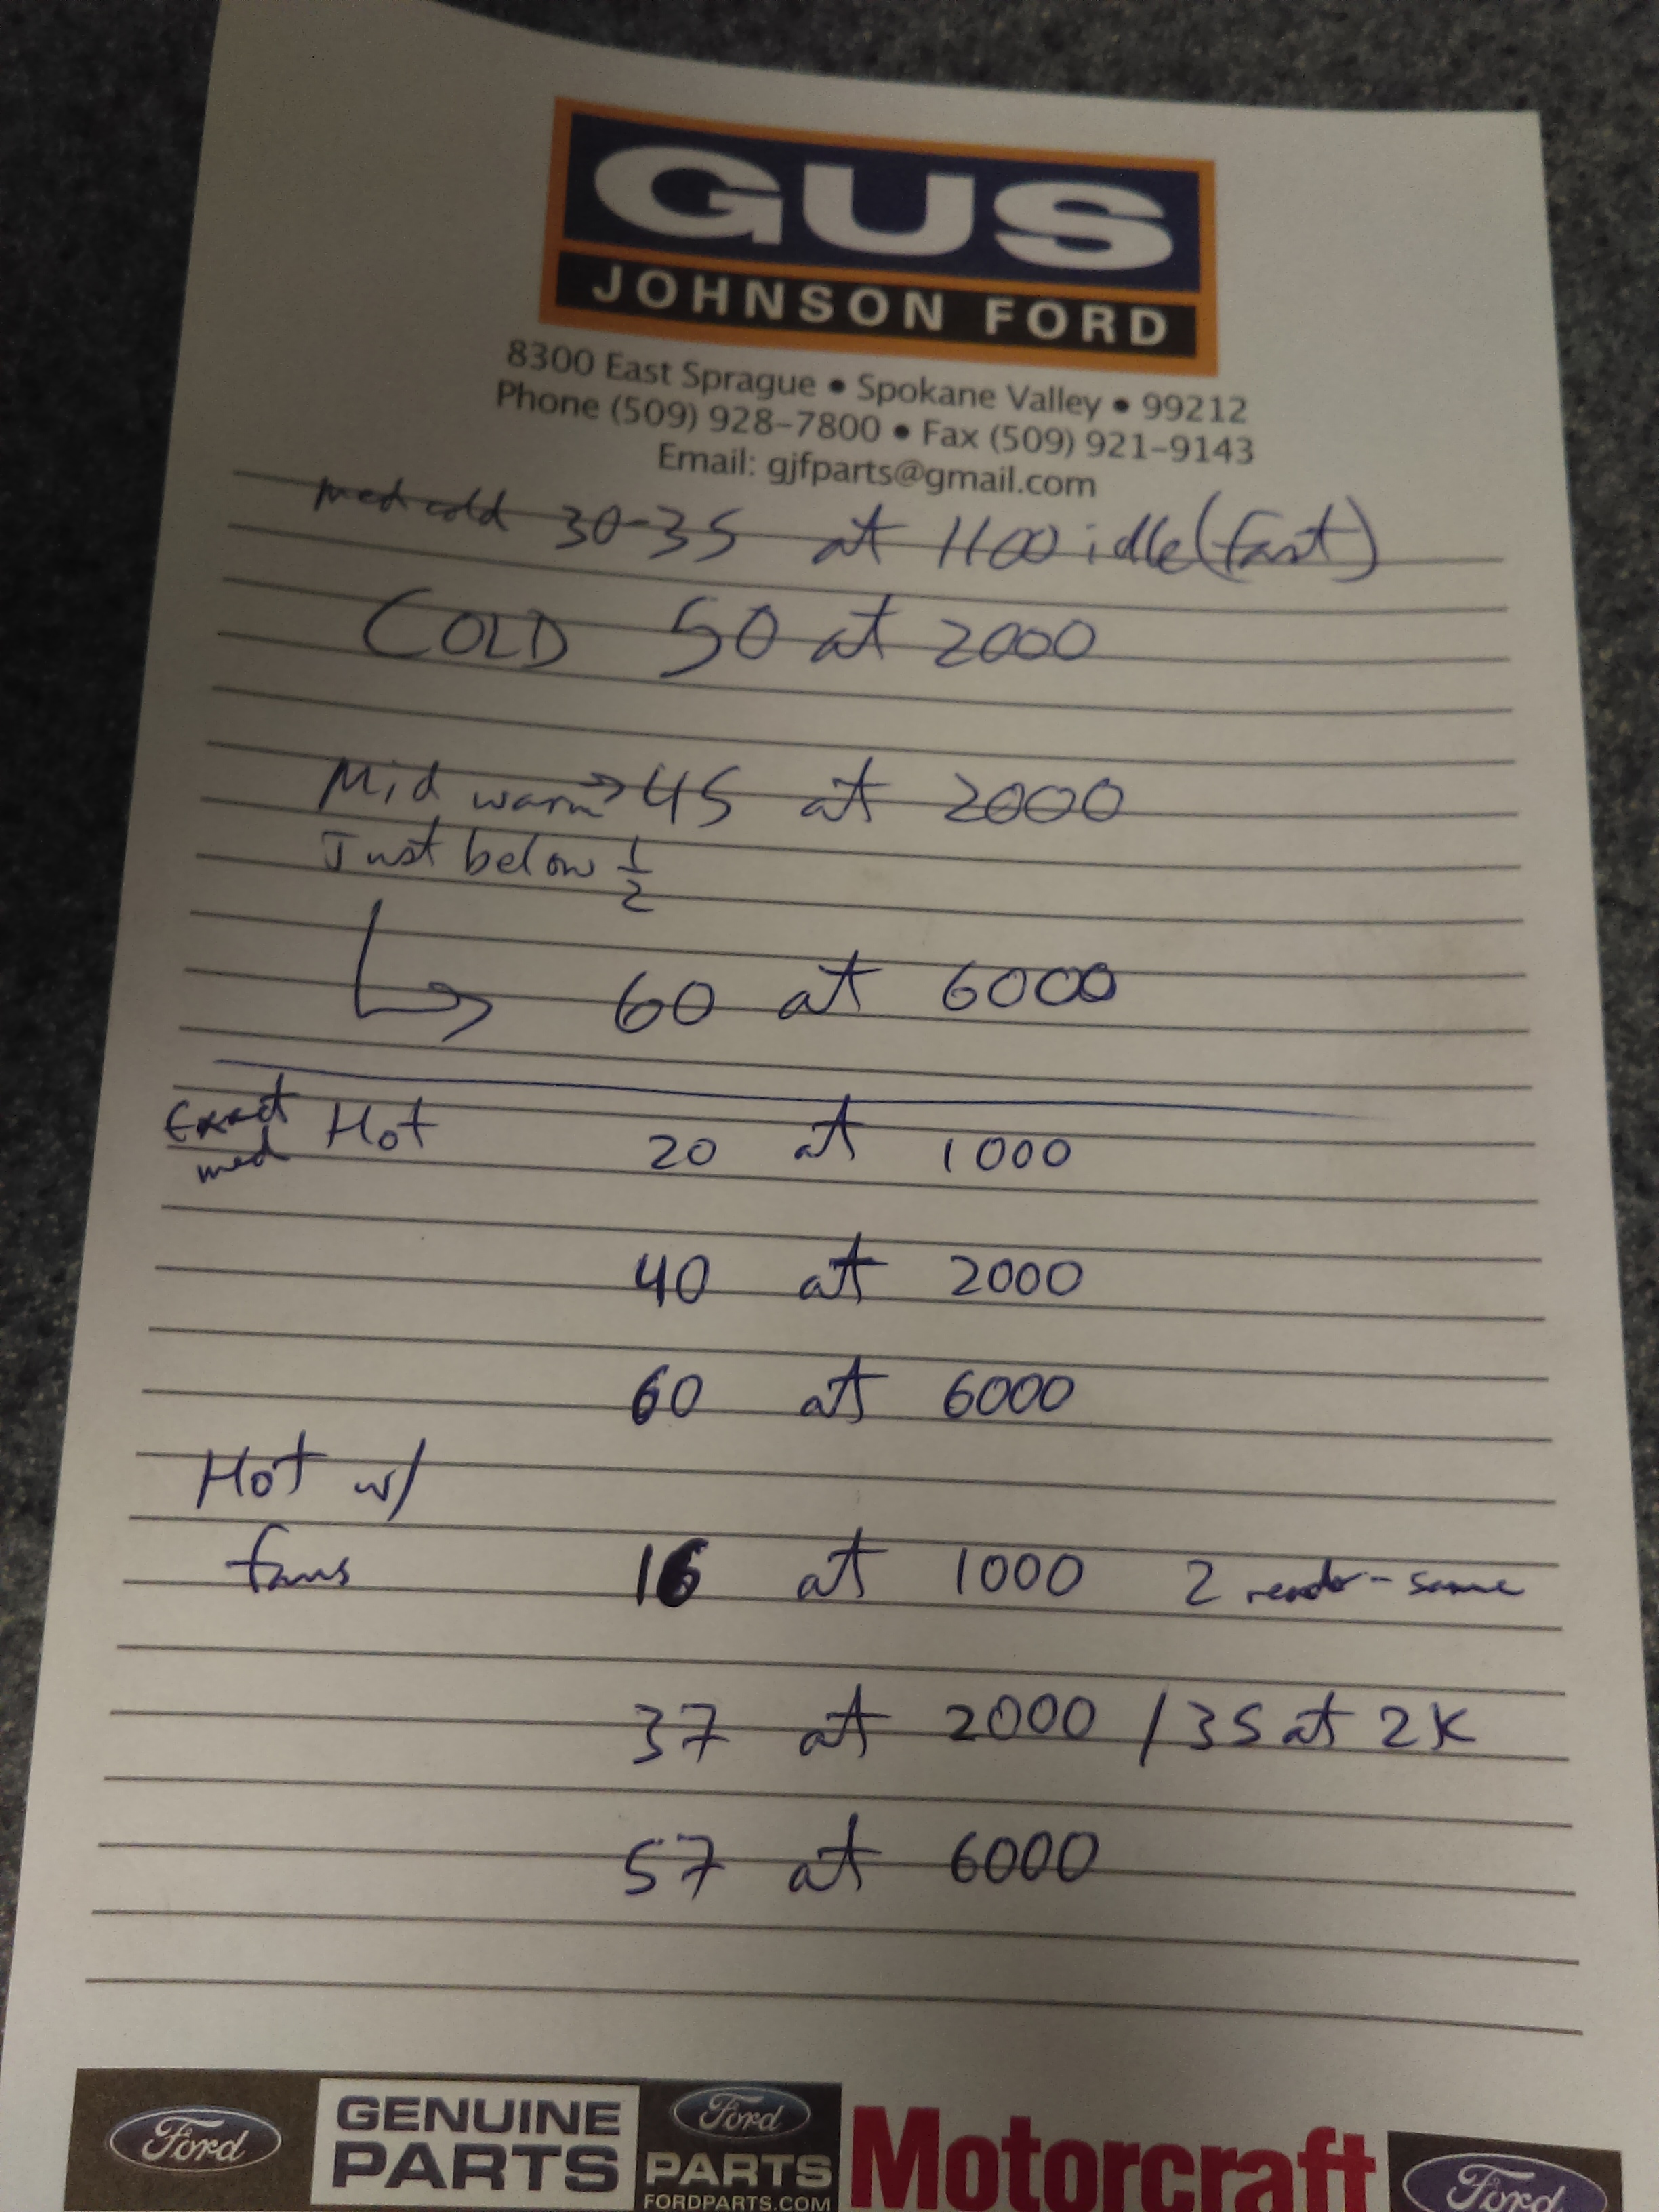 GUS
JOHNSON FORD
8300 East Sprague • Spokane Valley • 99212
Phone (509) 928-7800 • Fax (509) 921-9143
Email: gjfparts@gmail.com
med cold 30-35 at 1100 idle (fast)
COLD 50 at 2000
Mid warm → 45 at 2000
Just below 1/2
60 at 6000
Exact med Hot 20 at 1000
40 at 2000
60 at 6000
Hot w/
fans 16 at 1000 2 - same
37 at 2000 / 35 at 2K
57 at 6000
Ford GENUINE PARTS Ford PARTS FORDPARTS.COM Motorcraft Ford